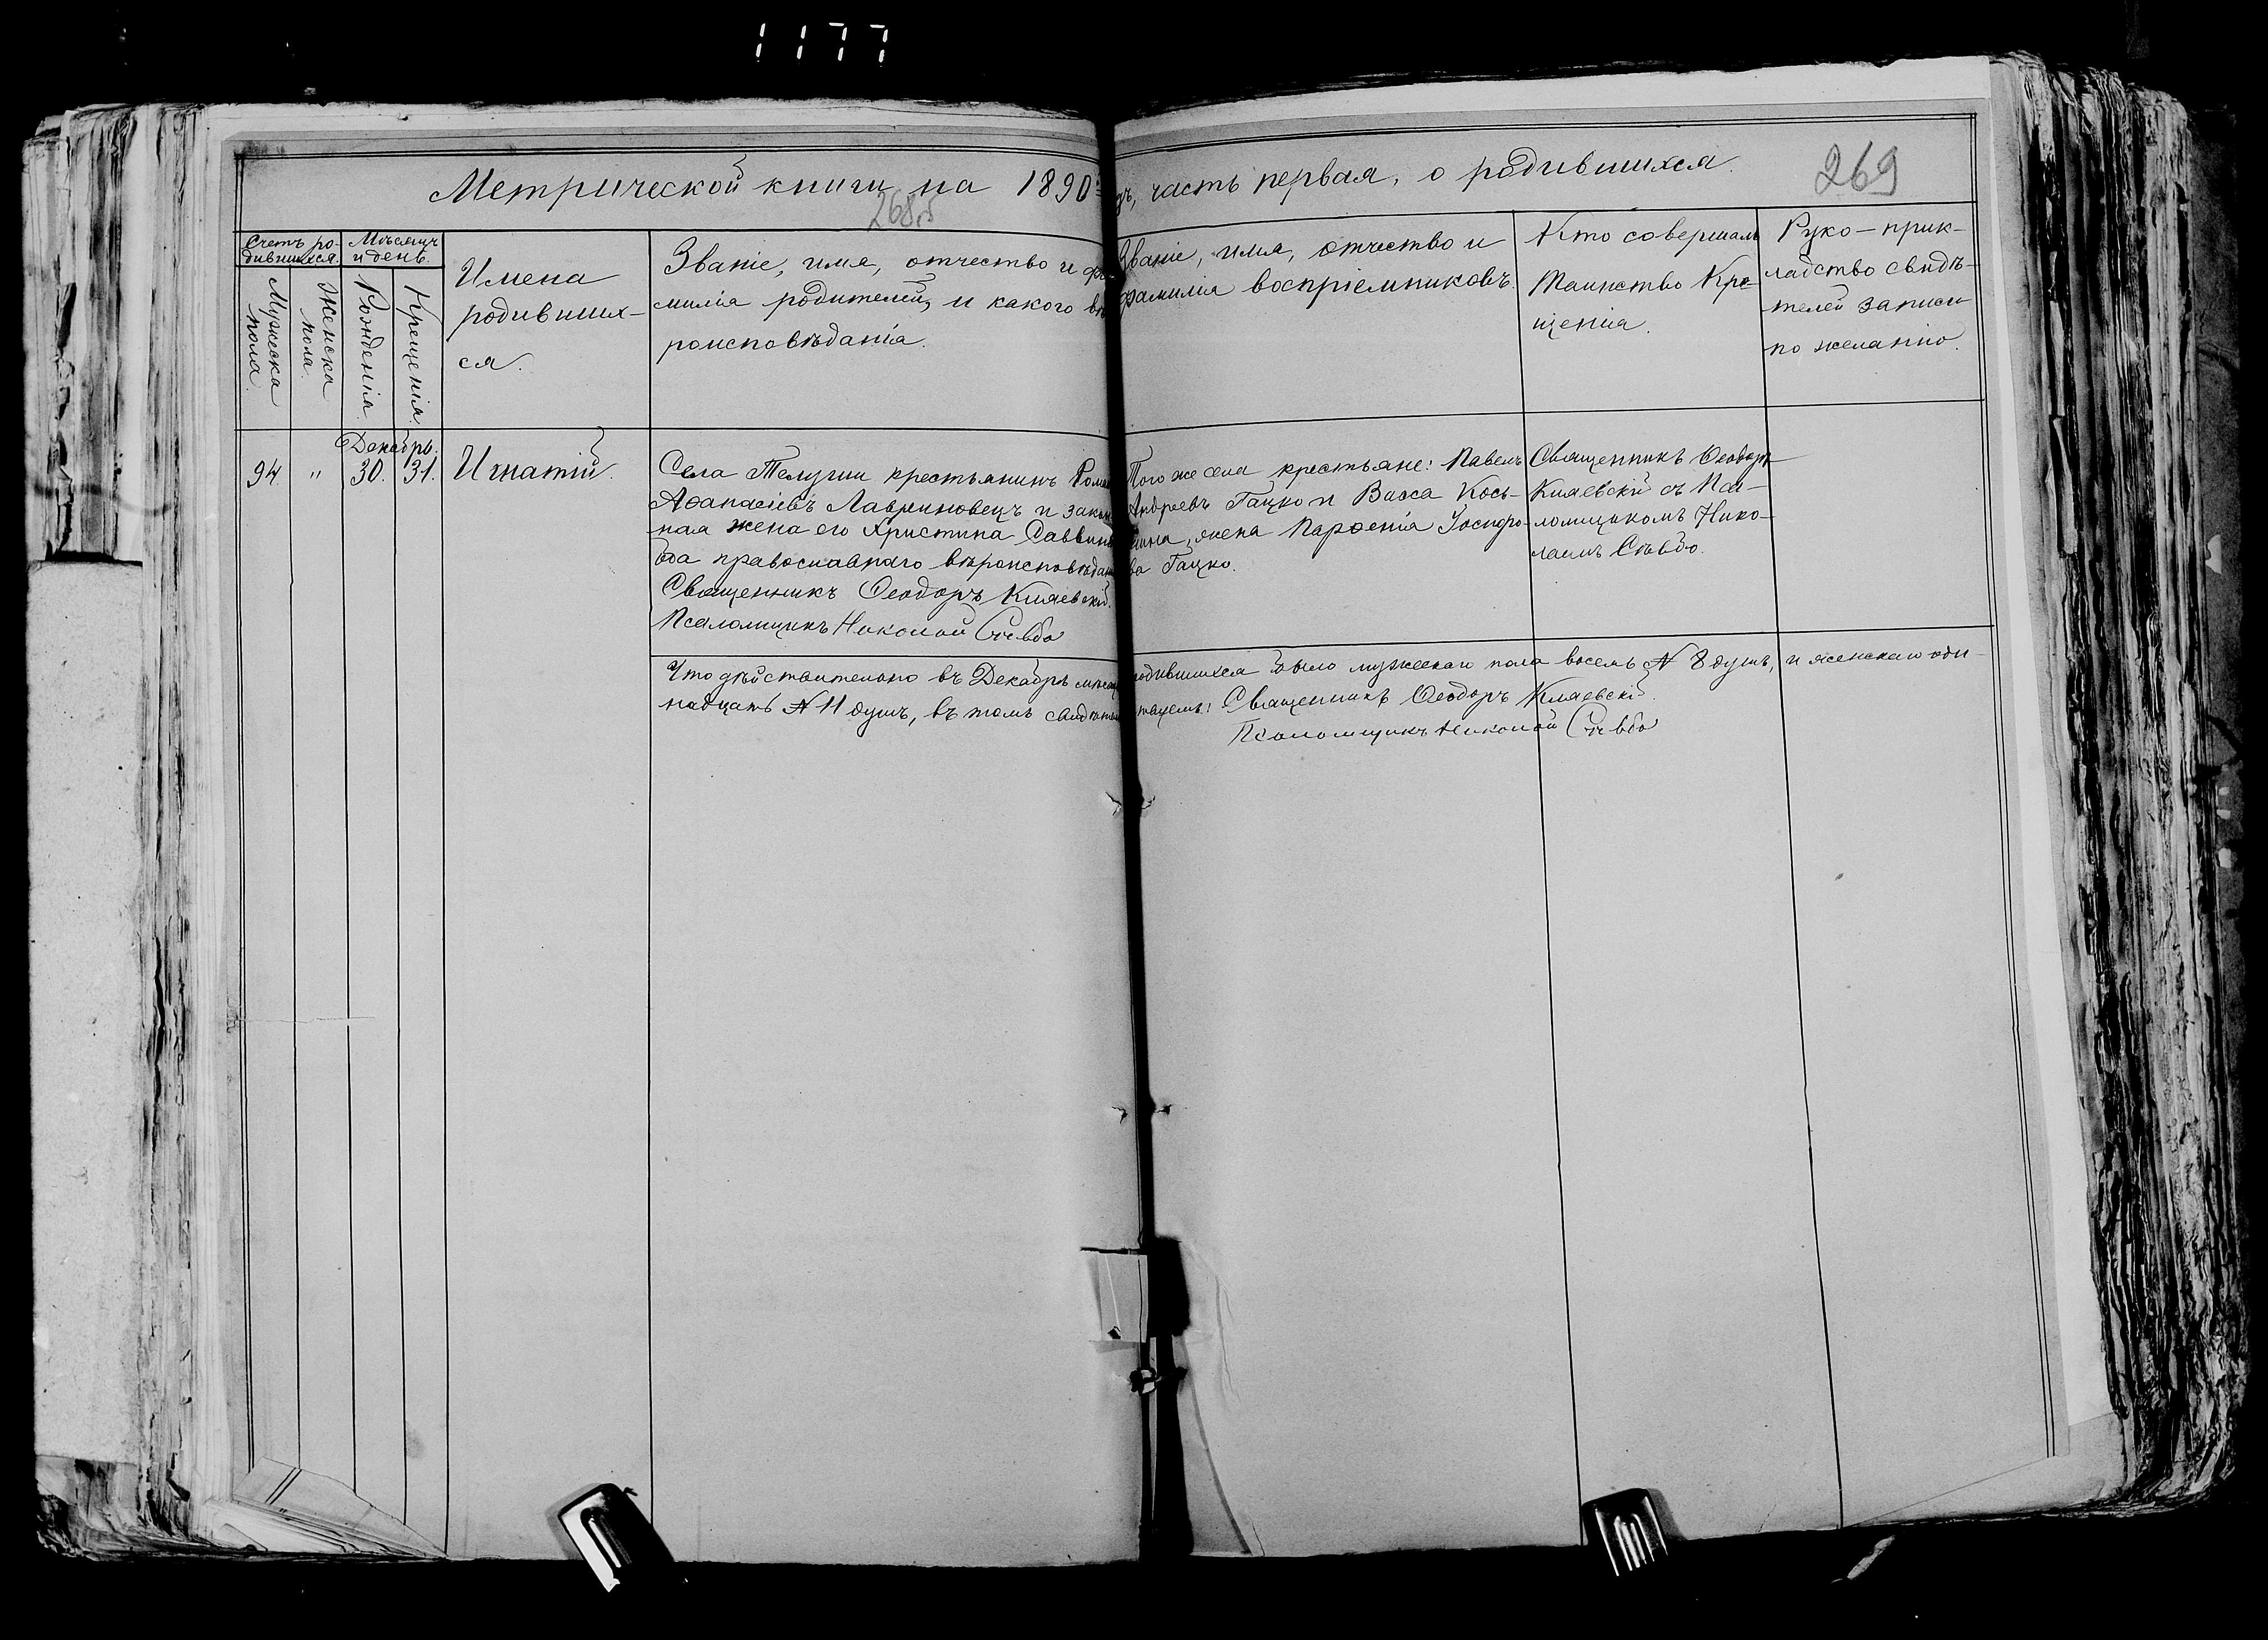 1177
Метрической книги на 1890й
268об
годъ, часть первая, о родившихся.
269
Счетъ ро-
дившихся.
Мужеска
пола.
Женска
пола.
Мѣсяцъ
и день.
Рожденія.
Крещенія.
Имена
родивших-
ся.
Званіе, имя, отчество и фа-
милія родителей, и какого вѣ-
роисповѣданія.
Званіе, имя, отчество и
фамилія воспріемниковъ.
Кто совершалъ
Таинство Кре-
щенія.
Руко-прик-
ладство свидѣ-
телей записи
по желанію.
Декабрь.
94. " 30. 31. Игнатій.
Села Телуши крестьянинъ Роман
Аѳанасіевъ Лавриновецъ и закон
ная жена его Христина Саввина
оба православнаго вѣроисповѣдан
Священникъ Ѳеодоръ Кляевскій.
Псаломщикъ Николай Сѣвбо
Того же села крестьяне: Павелъ
Андреевъ Гацко и Васса Кось-
мина, жена Парѳенія
ва Гацко.
Священникъ Ѳеодоръ
Кляевскій съ Пса-
ломщикомъ Нико-
лаемъ Сѣвбо.
Что дѣйствительно въ Декабрѣ мѣсяцѣ родившихся было мужескаго пола восемь № 8 душъ, и женскаго оди-
надцать № 11 душъ, въ томъ свидѣтельствуемъ: Священникъ Ѳеодоръ Кляевскій.
Псаломщикъ Николай Сѣвбо